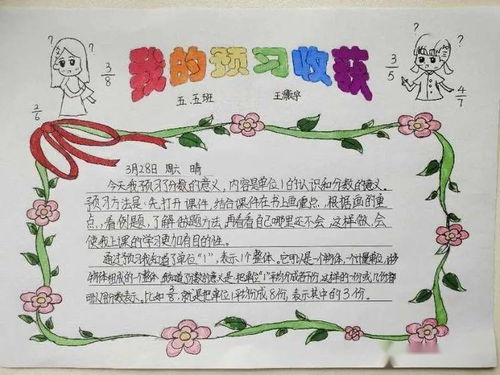 ? ? ? ?
我的预习收获
3/8 3/5
2/6 4/1
五.五班 王
3月28日 周六 晴
今天我预习了分数的意义,内容是单位1的认识和分数的意义。
预习方法是:先打开课件,结合课件在书上画重点,根据画的重
点,看例题,了解做题方法,再看看自己哪里还不会,这样做,会
使我上课的学习更加有目的性。
通过预习我知道了单位"1",表示1个整体,它可以是一个物体,一个计量单位,
物体组成的一个整体,我知道了分数的意义是:把单位"1"平均分成若干份,这样的一份或几份都
可以用分数表示。比如3/8,就是把单位1平均分成8份,表示其中的3份。